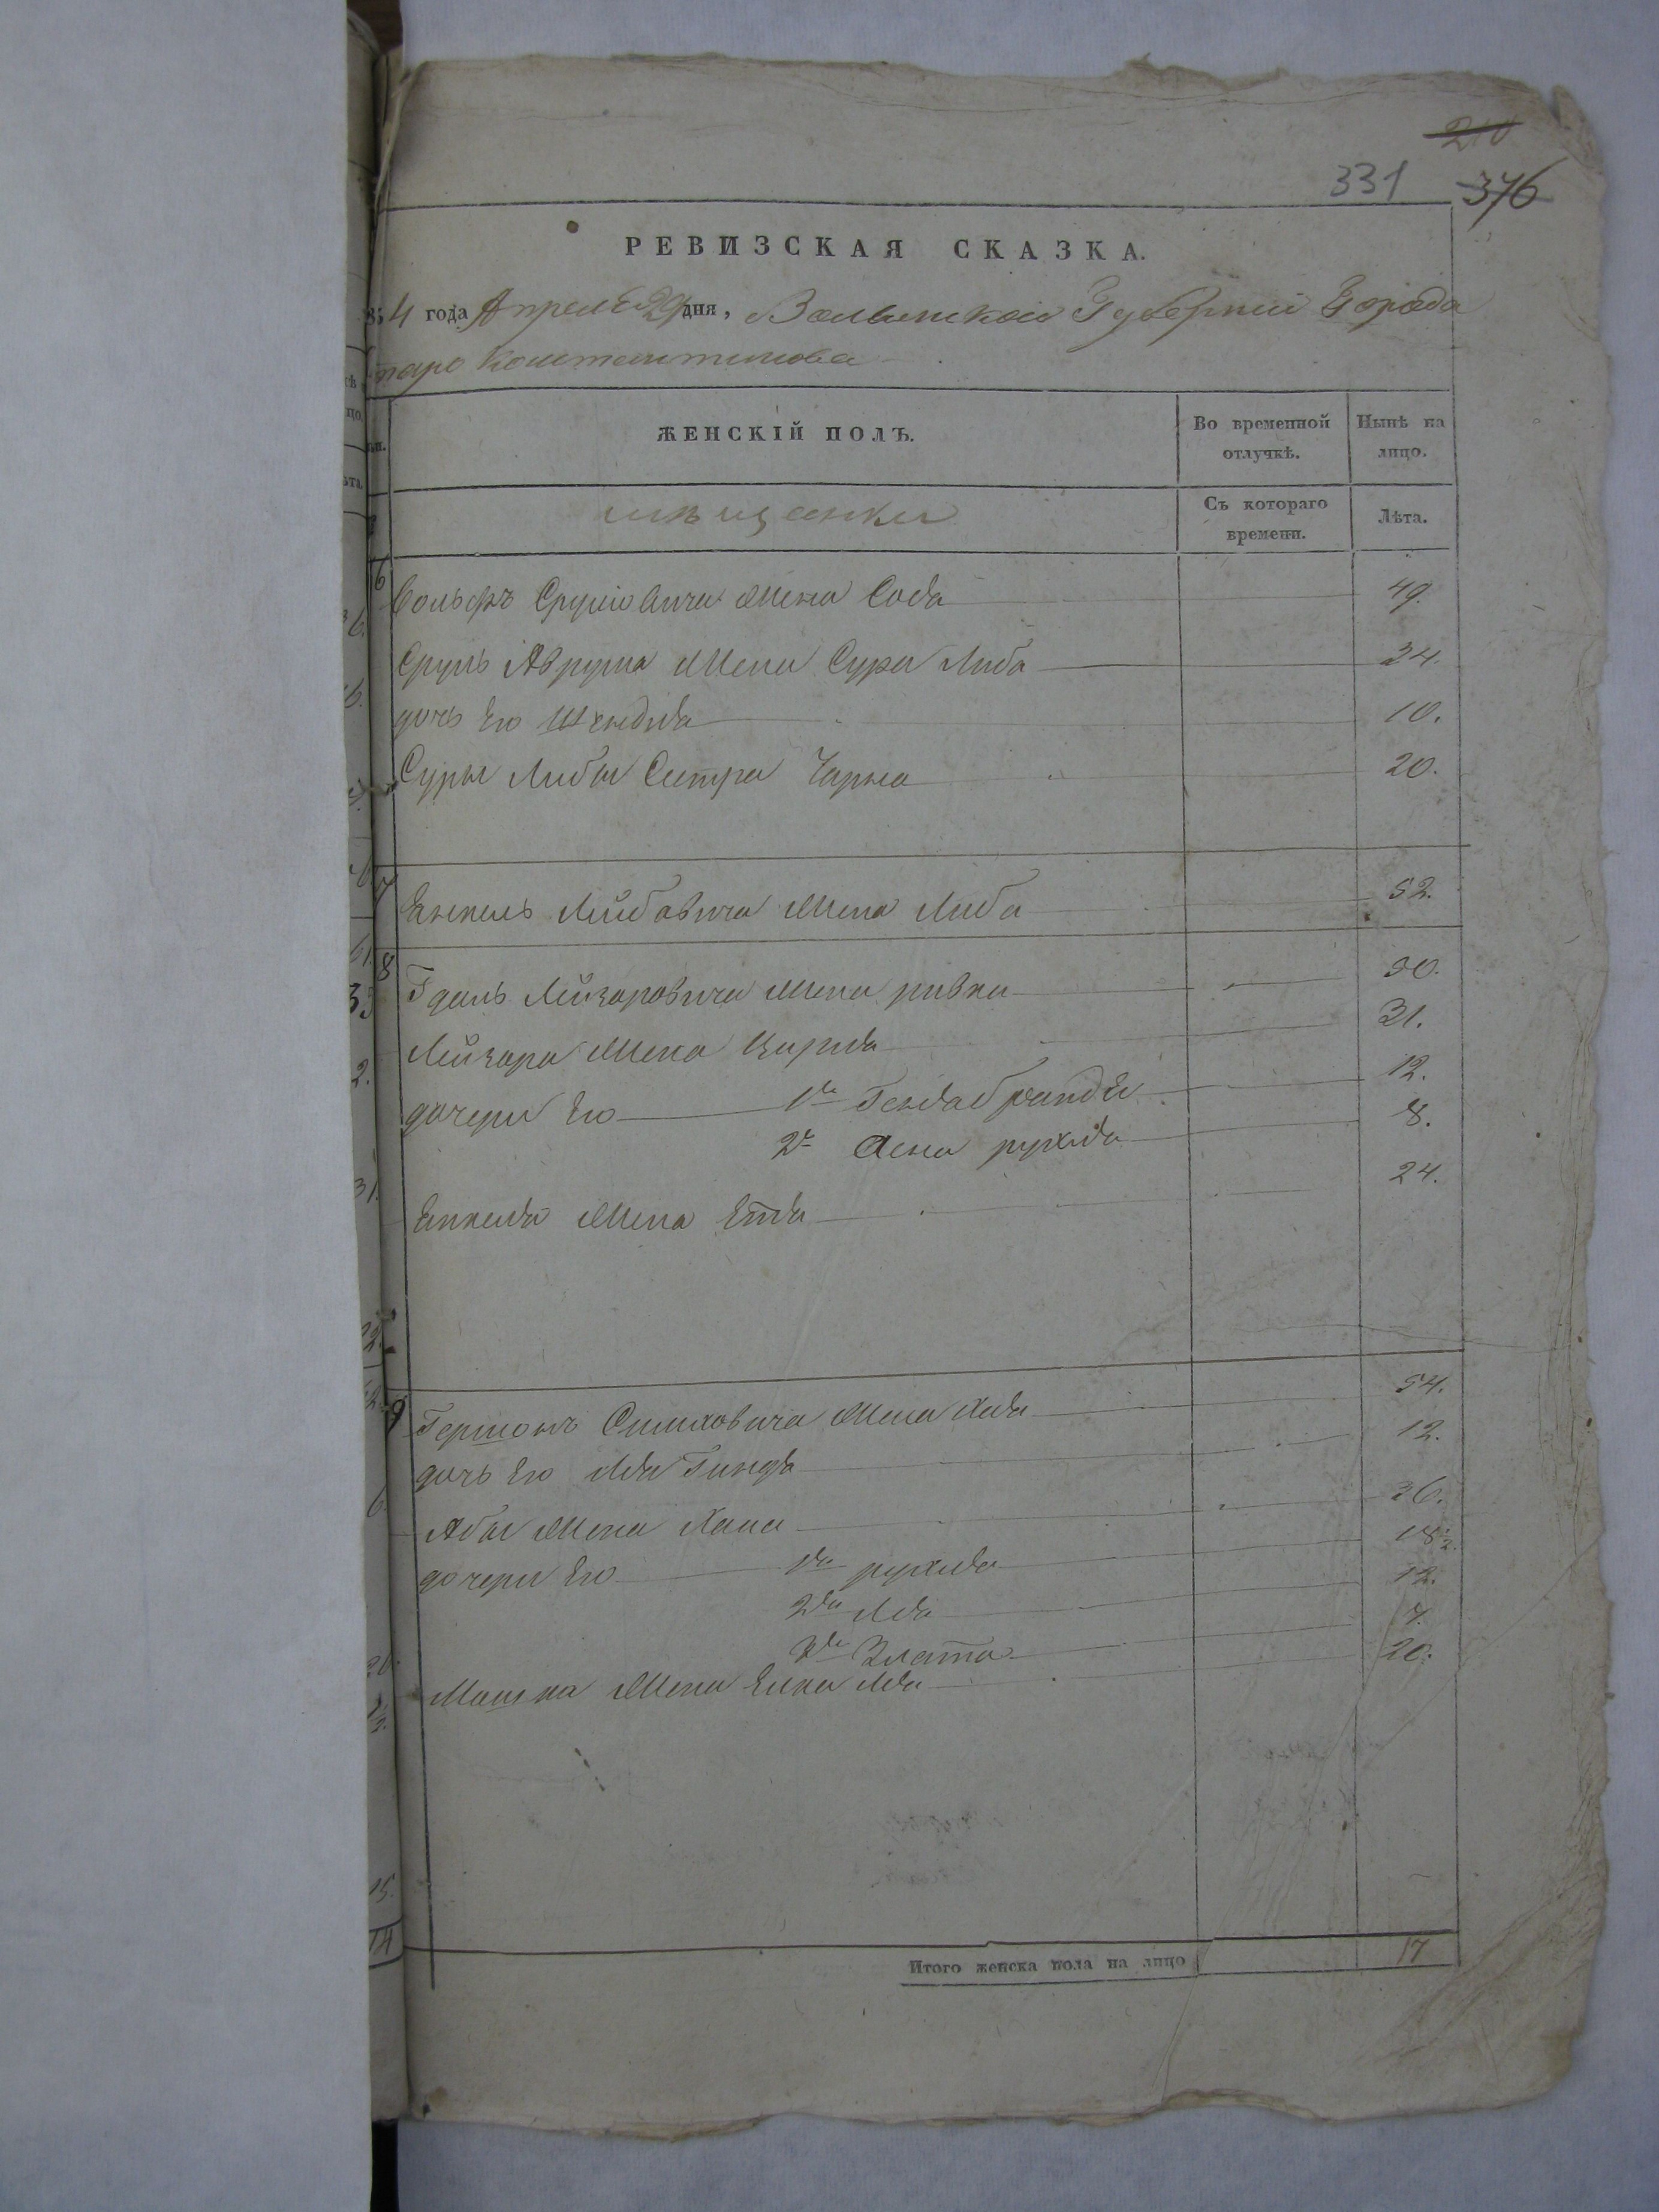 210
331 376
РЕВИЗСКАЯ СКАЗКА.
4 года Апреля 29 дня, Волынской Губернии Города
таро Константинова
ЖЕНСКІЙ ПОЛЪ.
Во временной отлучкѣ.
Нынѣ на лицо.
мѣщанки
Съ котораго времени.
Лѣта.
6 Вольфъ Срулiовича жена Соба 49.
Сруль Аврума жена Сура Либа 34.
дочь Его Шейндля 10.
Суры Либы Сестра Чарна 20.
7 Янкель Лейбовича жена Либа 52.
8 Гдаль Лейзоровича жена ривка 50.
Лейзора жена Цирля 31.
дочери Его 1я Генда брандля 12.
2я Асна рухля 8.
Янкеля жена Етля 24.
9 Гершонъ Симховича жена Хая 54.
дочь Его Лея Гинда 12.
Абы жена Хана 36.
дочери Его 1я рухля 18½.
2я Лея 12.
3я Злата 7.
Мошка жена Елка Лея 20.
Итого женска пола на лицо 17